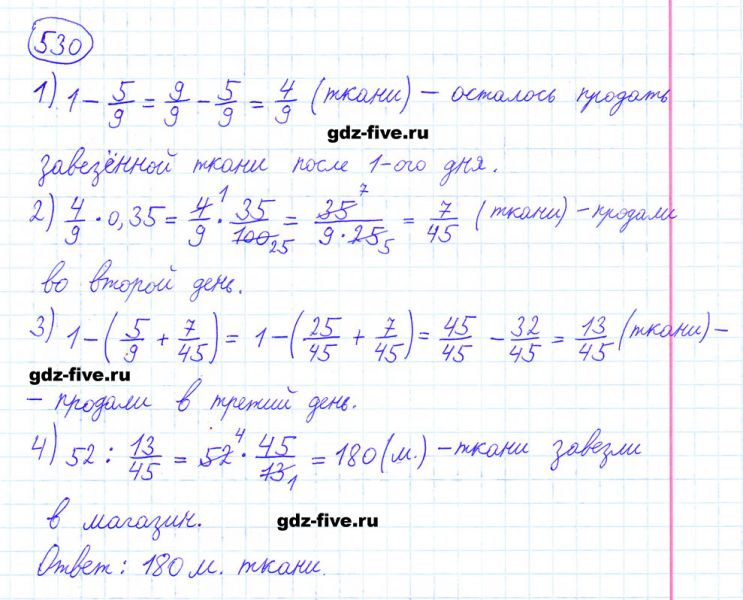 530
1) 1 - 5/9 = 9/9 - 5/9 = 4/9 (ткани) - осталось продать
gdz-five.ru
завезённой ткани после 1-ого дня.
2) 4/9 · 0,35 = 4/9 1 · 35/100 25 = 35 7/9 · 25 5 = 7/45 (ткани) - продали
во второй день.
3) 1 - (5/9 + 7/45) = 1 - (25/45 + 7/45) = 45/45 - 32/45 = 13/45 (ткани) -
gdz-five.ru
- продали в третий день.
4) 52 : 13/45 = 52 4 · 45/13 1 = 180 (м.) - ткани завезли
в магазин.
gdz-five.ru
Ответ: 180 м. ткани.